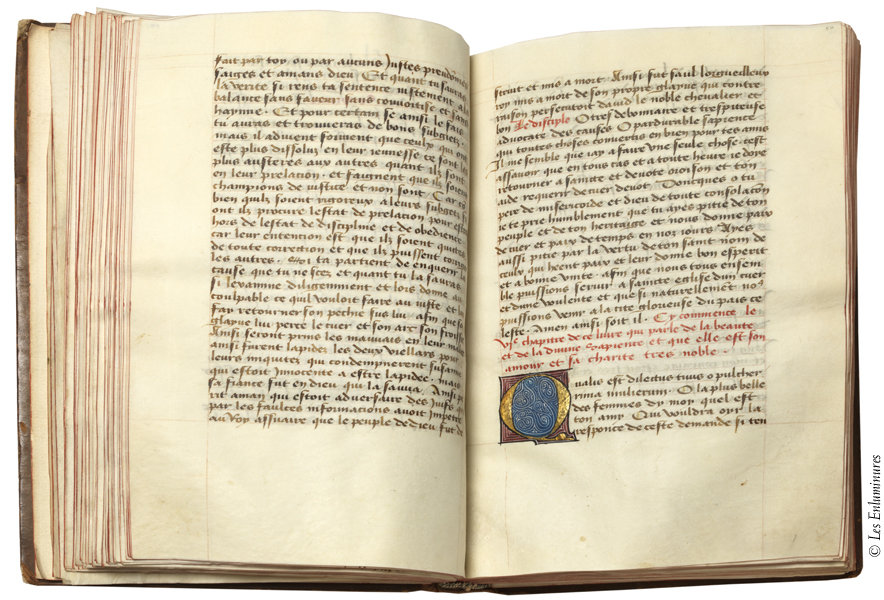 fait par toy ou par aucuns Justes preudomes
saiges et amans dieu . Et quant tu sauras
la verite si rens ta sentence justement a
balance sans faveur sans couvoitise et sans
hayne . Et pour certain se ainsi le fais
tu auras et trouveras de bons subgetz .
mais il advient souvent que ceulx qui ont
este plus dissoluz en leur jeunesse ce sont les
plus austeres aux autres quant ilz sont
en leur prelation . et faignent que ilz soient
champions de justice et non sont . Car com
bien quilz soient rigoreux a leurs subgetz si
ont ilz procure lestat de prelation pour estre
hors de lestat de discipline et de obedience
car leur entention est que ilz soient quictes
de toute correction et que ilz puissent corriger
les autres . Si ta partient de enquerir la
cause que tu ne scez et quant tu la sauras
si lexamine diligemment et lors donne au
coulpable ce quil vouloit faire au juste et le
fay retourner son pechie sus lui . afin que son
glayve lui perce le cuer et son arc soit froisse
Ainsi seront prins les mauvais en leur malice
ainsi furent lapidez les deux vieillars pour
leurs iniquitez qui condempnerent susanne
qui estoit innocente a estre lapidee . mais
sa fiance fut en dieu qui la sauva . Ainsi pe
rit aman qui estoit adversaire des Juifs qui
par les faulces informations avoit impetre
au Roy assuaire que le peuple de dieu fut de
struit et mis a mort . Ainsi fut saul lorgueilleux
roy mis a mort de son propre glayve qui contre
raison persecutoit david le noble chevalier et
bon . Le disciple O tres debonnaire et trespiteuse
advocate des causes O pardurable sapience
qui toutes choses convertis en bien pour tes amis
Il me semble que iay a faire une seule chose . cest
assavoir que en tous cas et a toute heure ie doye
retourner a saincte et devote oroison et ton
aide requerir de cuer devot . Doncques o tu
pere de misericorde et dieu de toute consolacion
ie te prie humblement que tu ayes pitie de ton
peuple et de ton heritaige et nous donne paix
de cuer et paix de temps en noz jours . Ayes
aussi pitie par la vertu de ton saint nom de
ceulx qui heent paix et leur donne bon esperit
et a bonne unite . afin que nous tous ensem
ble puissions servir a saincte eglise dun cuer
et dune voulente et que si naturellement nous
puissions venir a la cite glorieuse du pais ce
leste . Amen ainsi soit il . Cy commence le
VIe chapitre de ce livre qui parle de la beaute
et de la divine sapience et que elle est son
amour et sa charite tres noble .
Qualis est dilectus tuus o pulcher
rima mulierum . O la plus belle
des femmes dy moy quel est
ton amy . Qui vouldra oyr la
responce de ceste demande si ten
© Les Enluminures